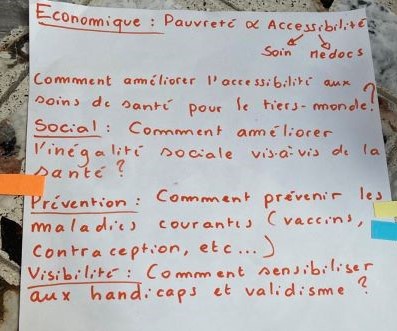 Economique : Pauvreté ∝ Accessibilité
Soin Médocs
Comment améliorer l'accessibilité aux
soins de santé pour le tiers-monde ?
Social : Comment améliorer
l'inégalité sociale vis-à-vis de la
santé ?
Prévention : Comment prévenir les
maladies courantes (vaccins,
contraception, etc...)
Visibilité : Comment sensibiliser
aux handicaps et validisme ?